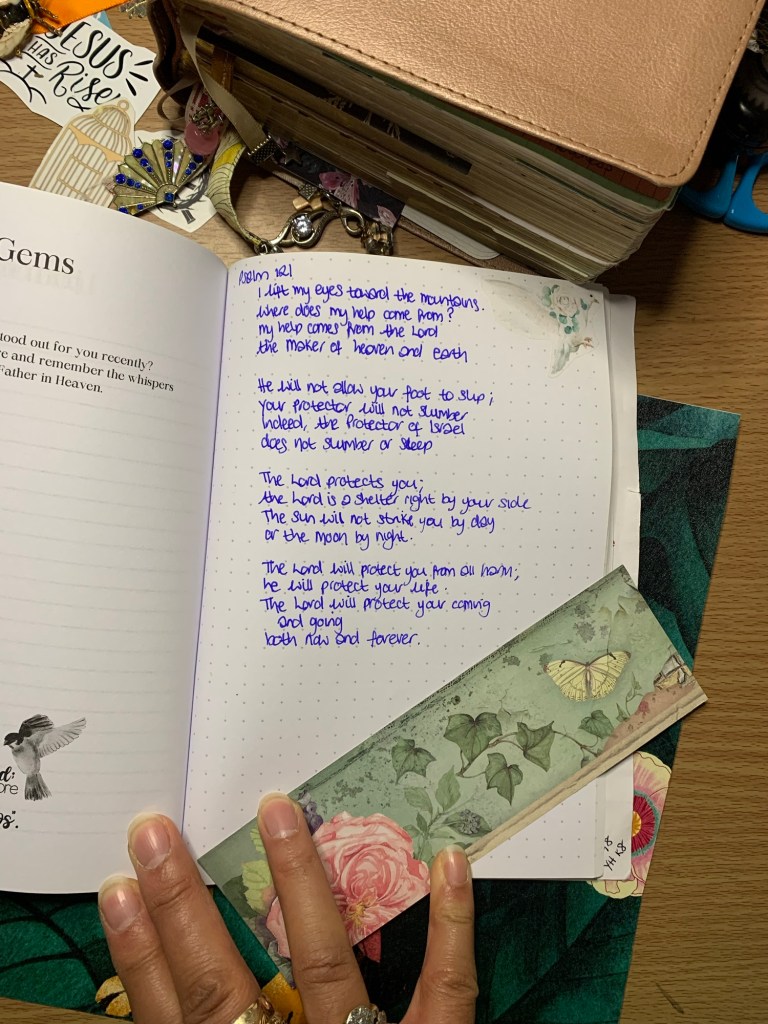 JESUS
HAS
Rise
Gems
tood out for you recently?
re and remember the whispers
Father in Heaven.
Psalm 121
I lift my eyes toward the mountains.
Where does my help come from?
My help comes from the Lord
the Maker of heaven and earth
He will not allow your foot to slip;
Your Protector will not slumber
Indeed, the Protector of Israel
does not slumber or sleep
The Lord protects you;
the Lord is a shelter right by your side
The sun will not strike you by day
or the moon by night.
The Lord will protect you from all harm;
he will protect your life.
The Lord will protect your coming
and going
both now and forever.
d:
ore
os.